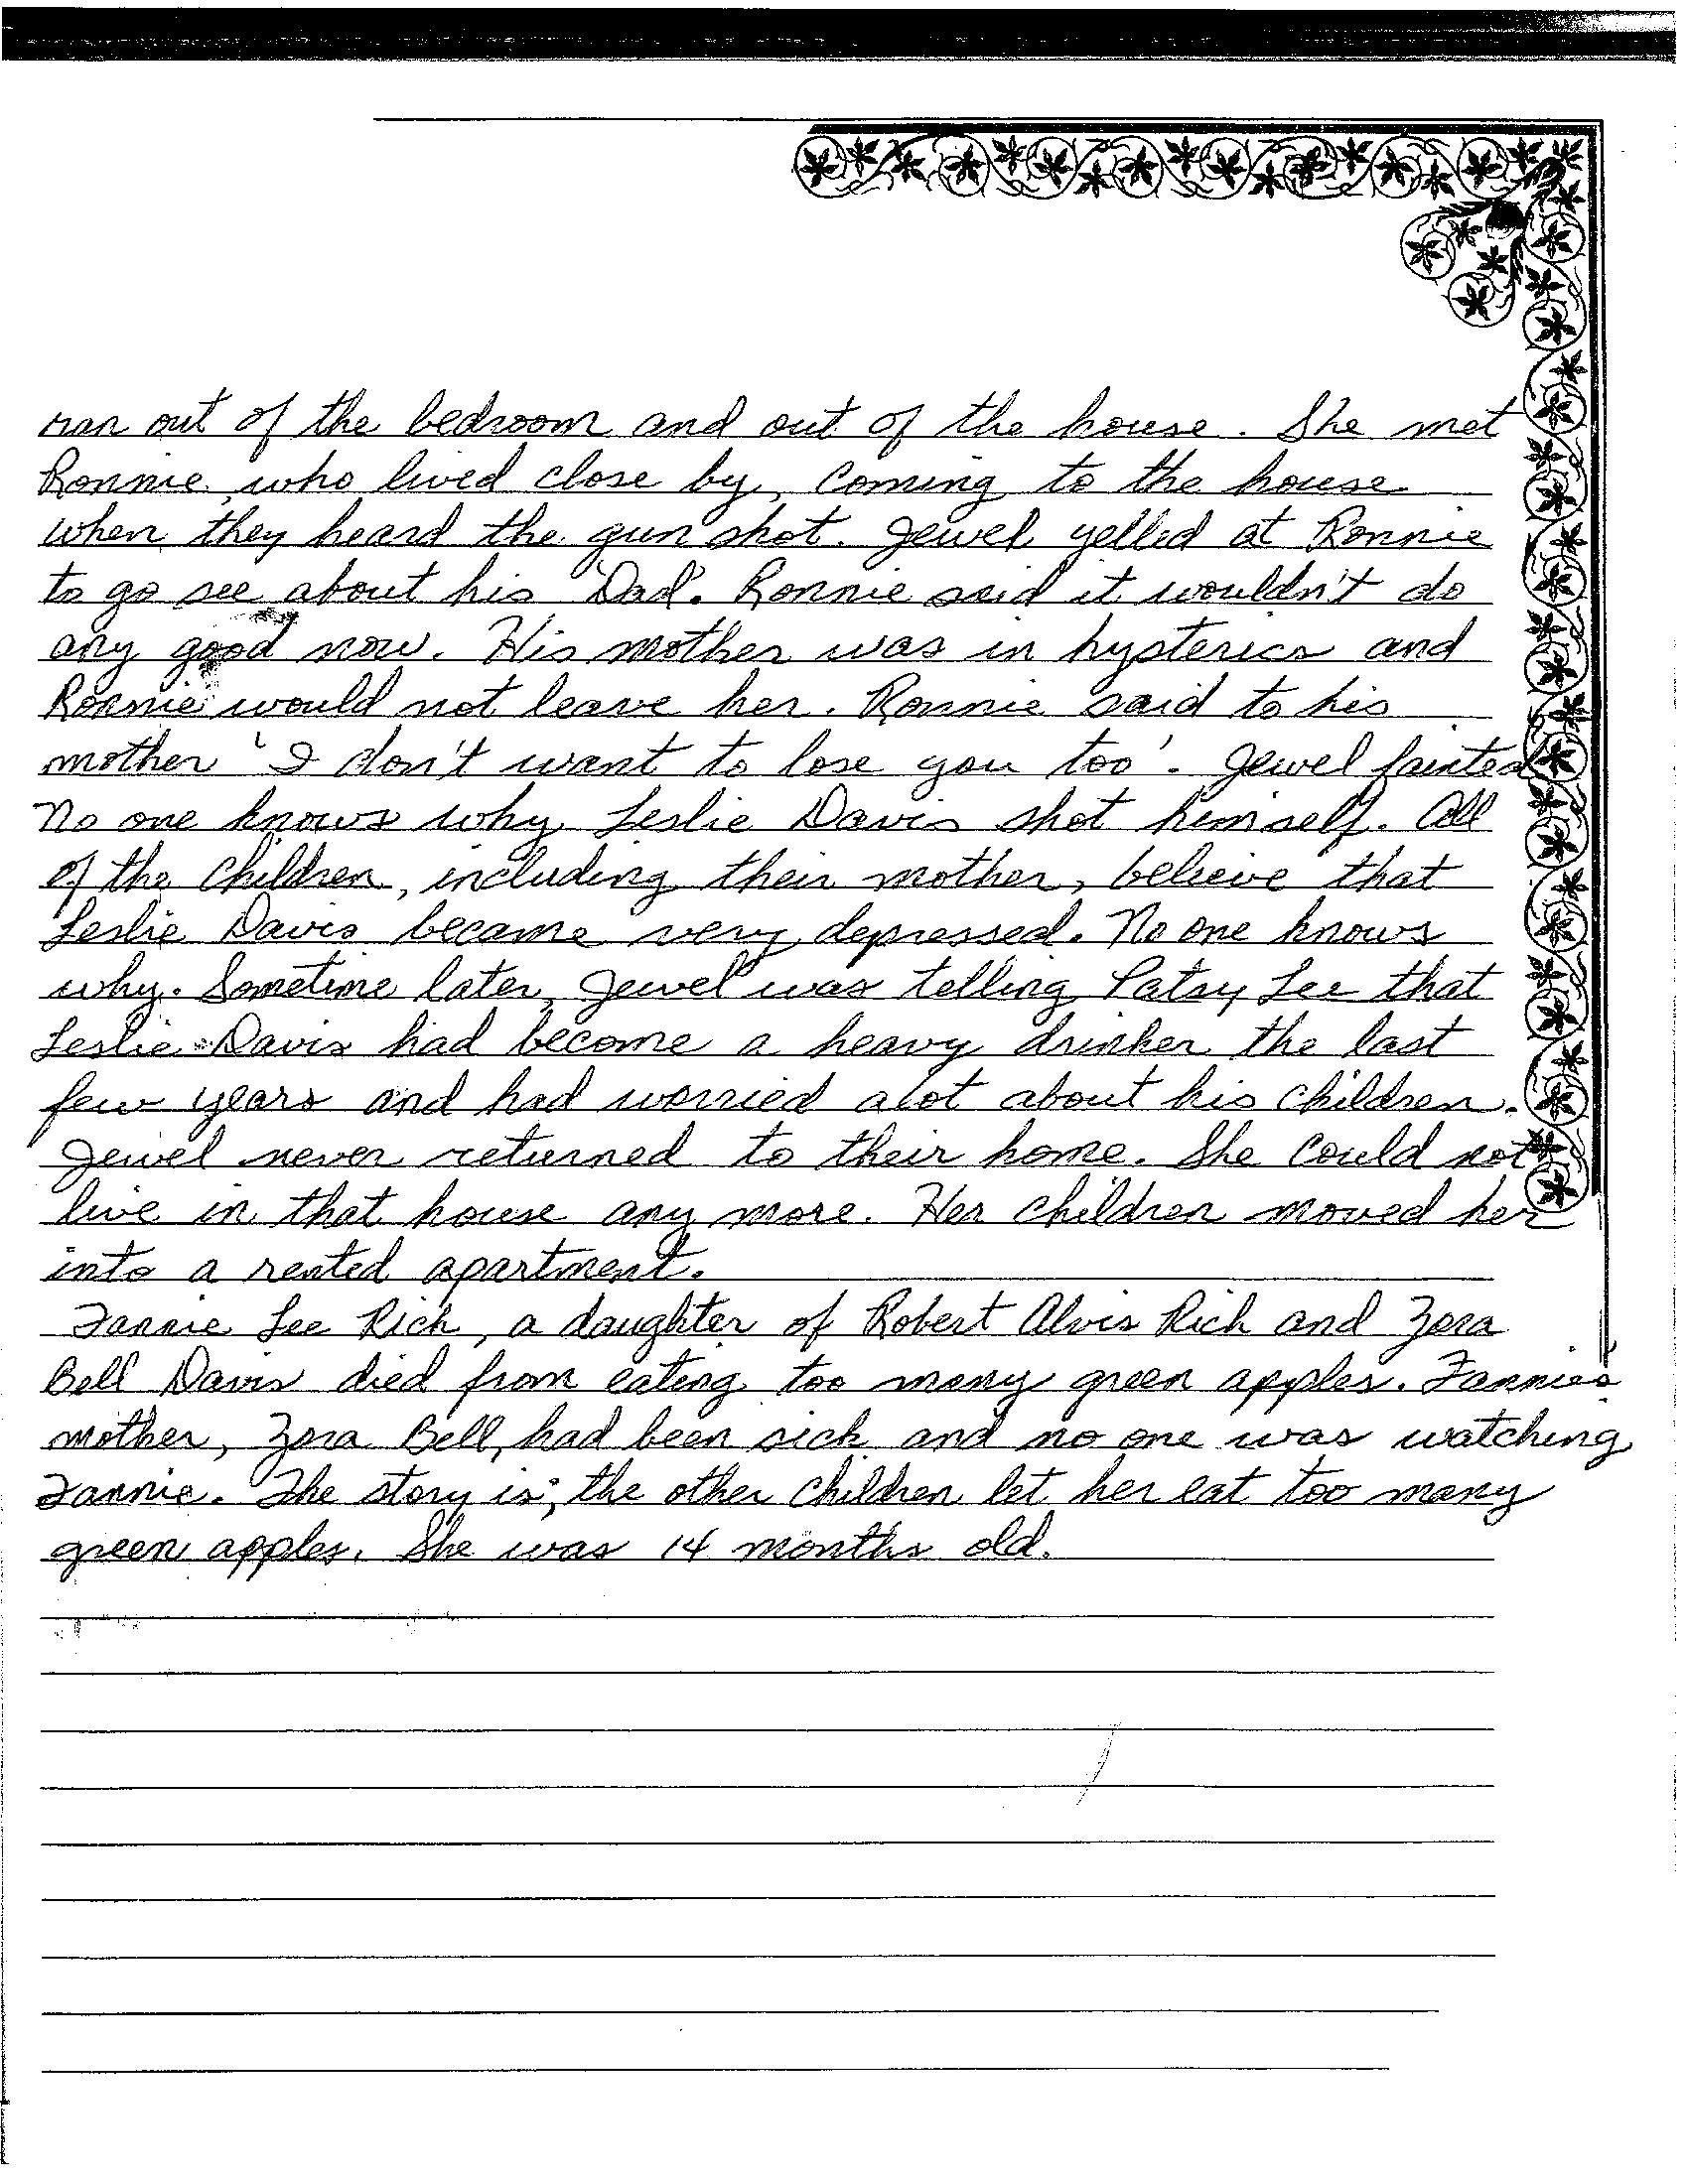 ran out of the bedroom and out of the house. She met
Ronnie, who lived close by, coming to the house
when they heard the gun shot. Jewel yelled at Ronnie
to go see about his 'Dad'. Ronnie said it wouldn't do
any good now. His mother was in hysterics and
Ronnie would not leave her. Ronnie said to his
mother 'I don't want to lose you too'. Jewel fainted
No one knows why Leslie Davis shot himself. All
of the children, including their mother, believe that
Leslie Davis became very depressed. No one knows
why. Sometime later, Jewel was telling Patsy Lee that
Leslie Davis had become a heavy drinker the last
few years and had worried alot about his children.
Jewel never returned to their home. She could not
live in that house any more. Her children moved her
into a rented apartment.
Fannie Lee Rich, a daughter of Robert Alvis Rich and Zora
Bell Davis died from eating too many green apples. Fannies
mother, Zora Bell, had been sick and no one was watching
Fannie. The story is; the other children let her eat too many
green apples. She was 14 months old.